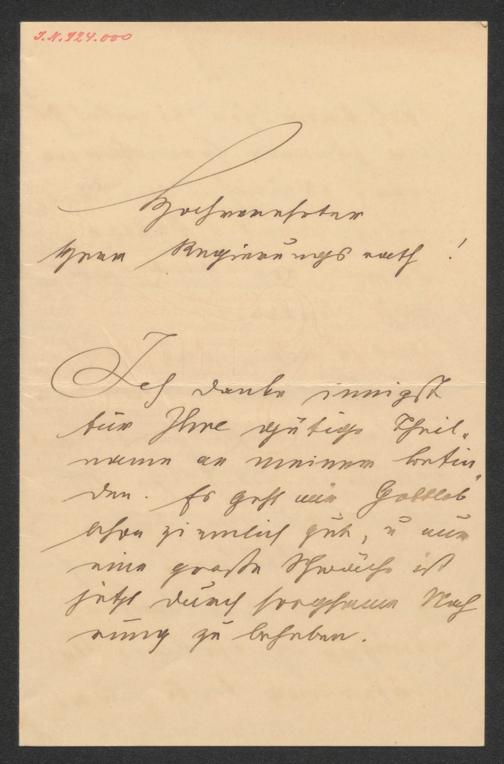 I.N. 924.000
Hochverehrter
Herr Regierungsrath!
Ich danke innigst
für Ihre gütige Theil-
name an meinem befin-
den. Es geht mir Gottlob
schon ziemlich gut, u nur
eine große Schwäche ist
jetzt durch sorgsame Nah
rung zu beheben.